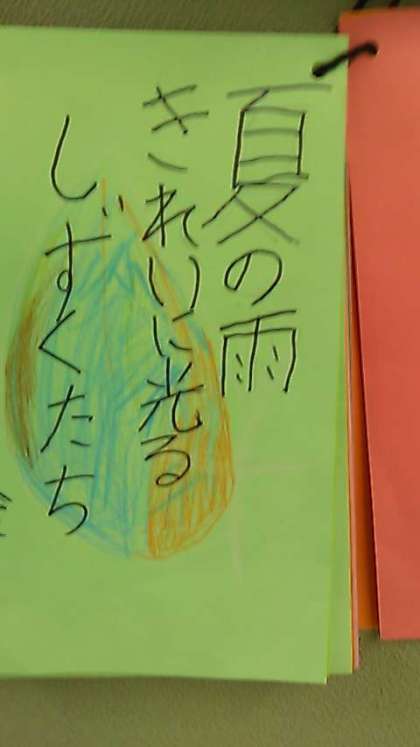 夏の雨
きれいに光る
しずくたち